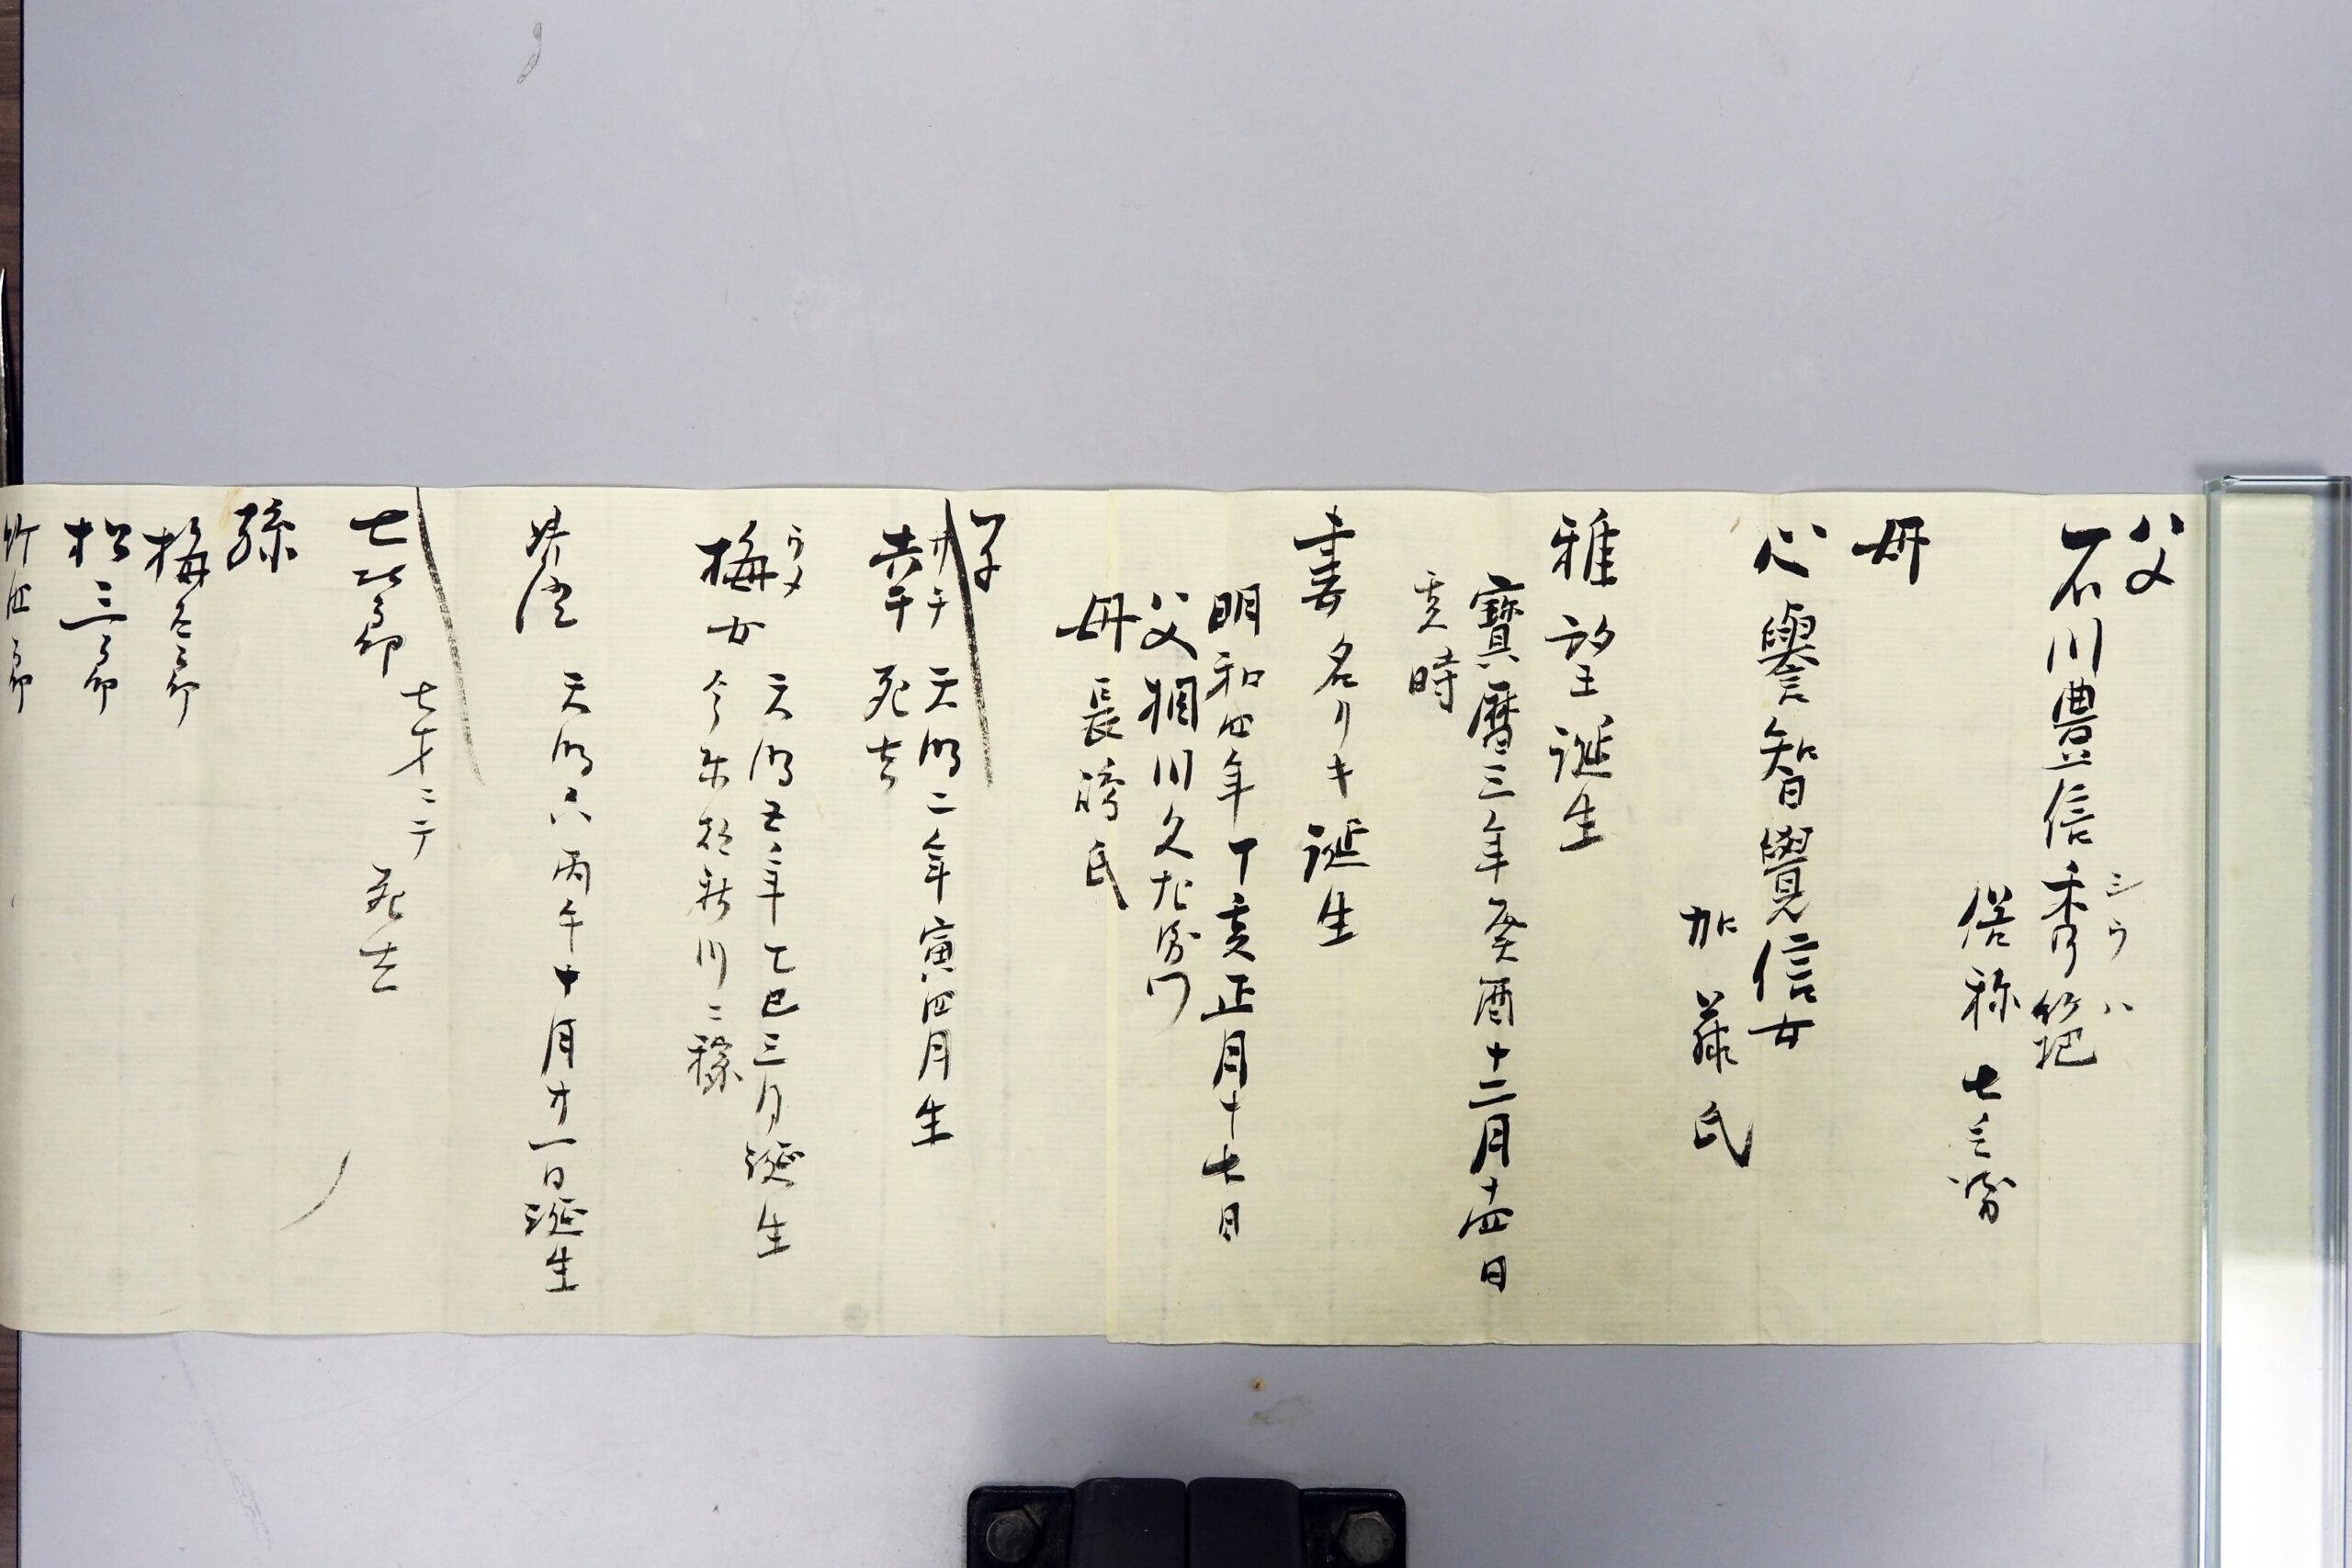 父
石川豊信秀葩
シウハ
俗称 七兵衛
母
心譽智覺信女
加藤氏
雅望誕生
寶暦三年癸酉十二月十四日
亥時
妻 名リキ 誕生
明和四年丁亥正月十七日
父 相川久左衛門
母 長崎氏
子
天明二年寅四月生
死去
ウメ
梅女 天明五年乙巳三月誕生
新川ニ稼
清澄 天明六丙午十月廿一日誕生
七次郎 七才ニテ
死去
孫
梅之郎
松三郎
竹四郎